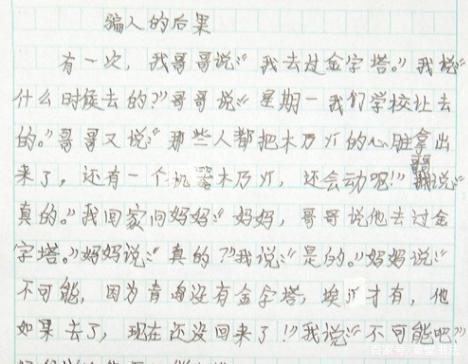 骗人的后果
有一次，我哥哥说：“我去过金字塔。”我说：“
什么时候去的？”哥哥说：“星期一我们学校让去
的。”哥哥又说：“那些人都把木乃伊的心脏拿出
来了，还有一个机器木乃伊，还会动呢！”我说：“
真的。”我回家问妈妈：“妈妈，哥哥说他去过金
字塔。”妈妈说：“真的？”我说：“是的。”妈妈说：“
不可能，因为青岛没有金字塔，埃及才有，他
如果去了，现在还没回来了！”我说：“不可能吧”